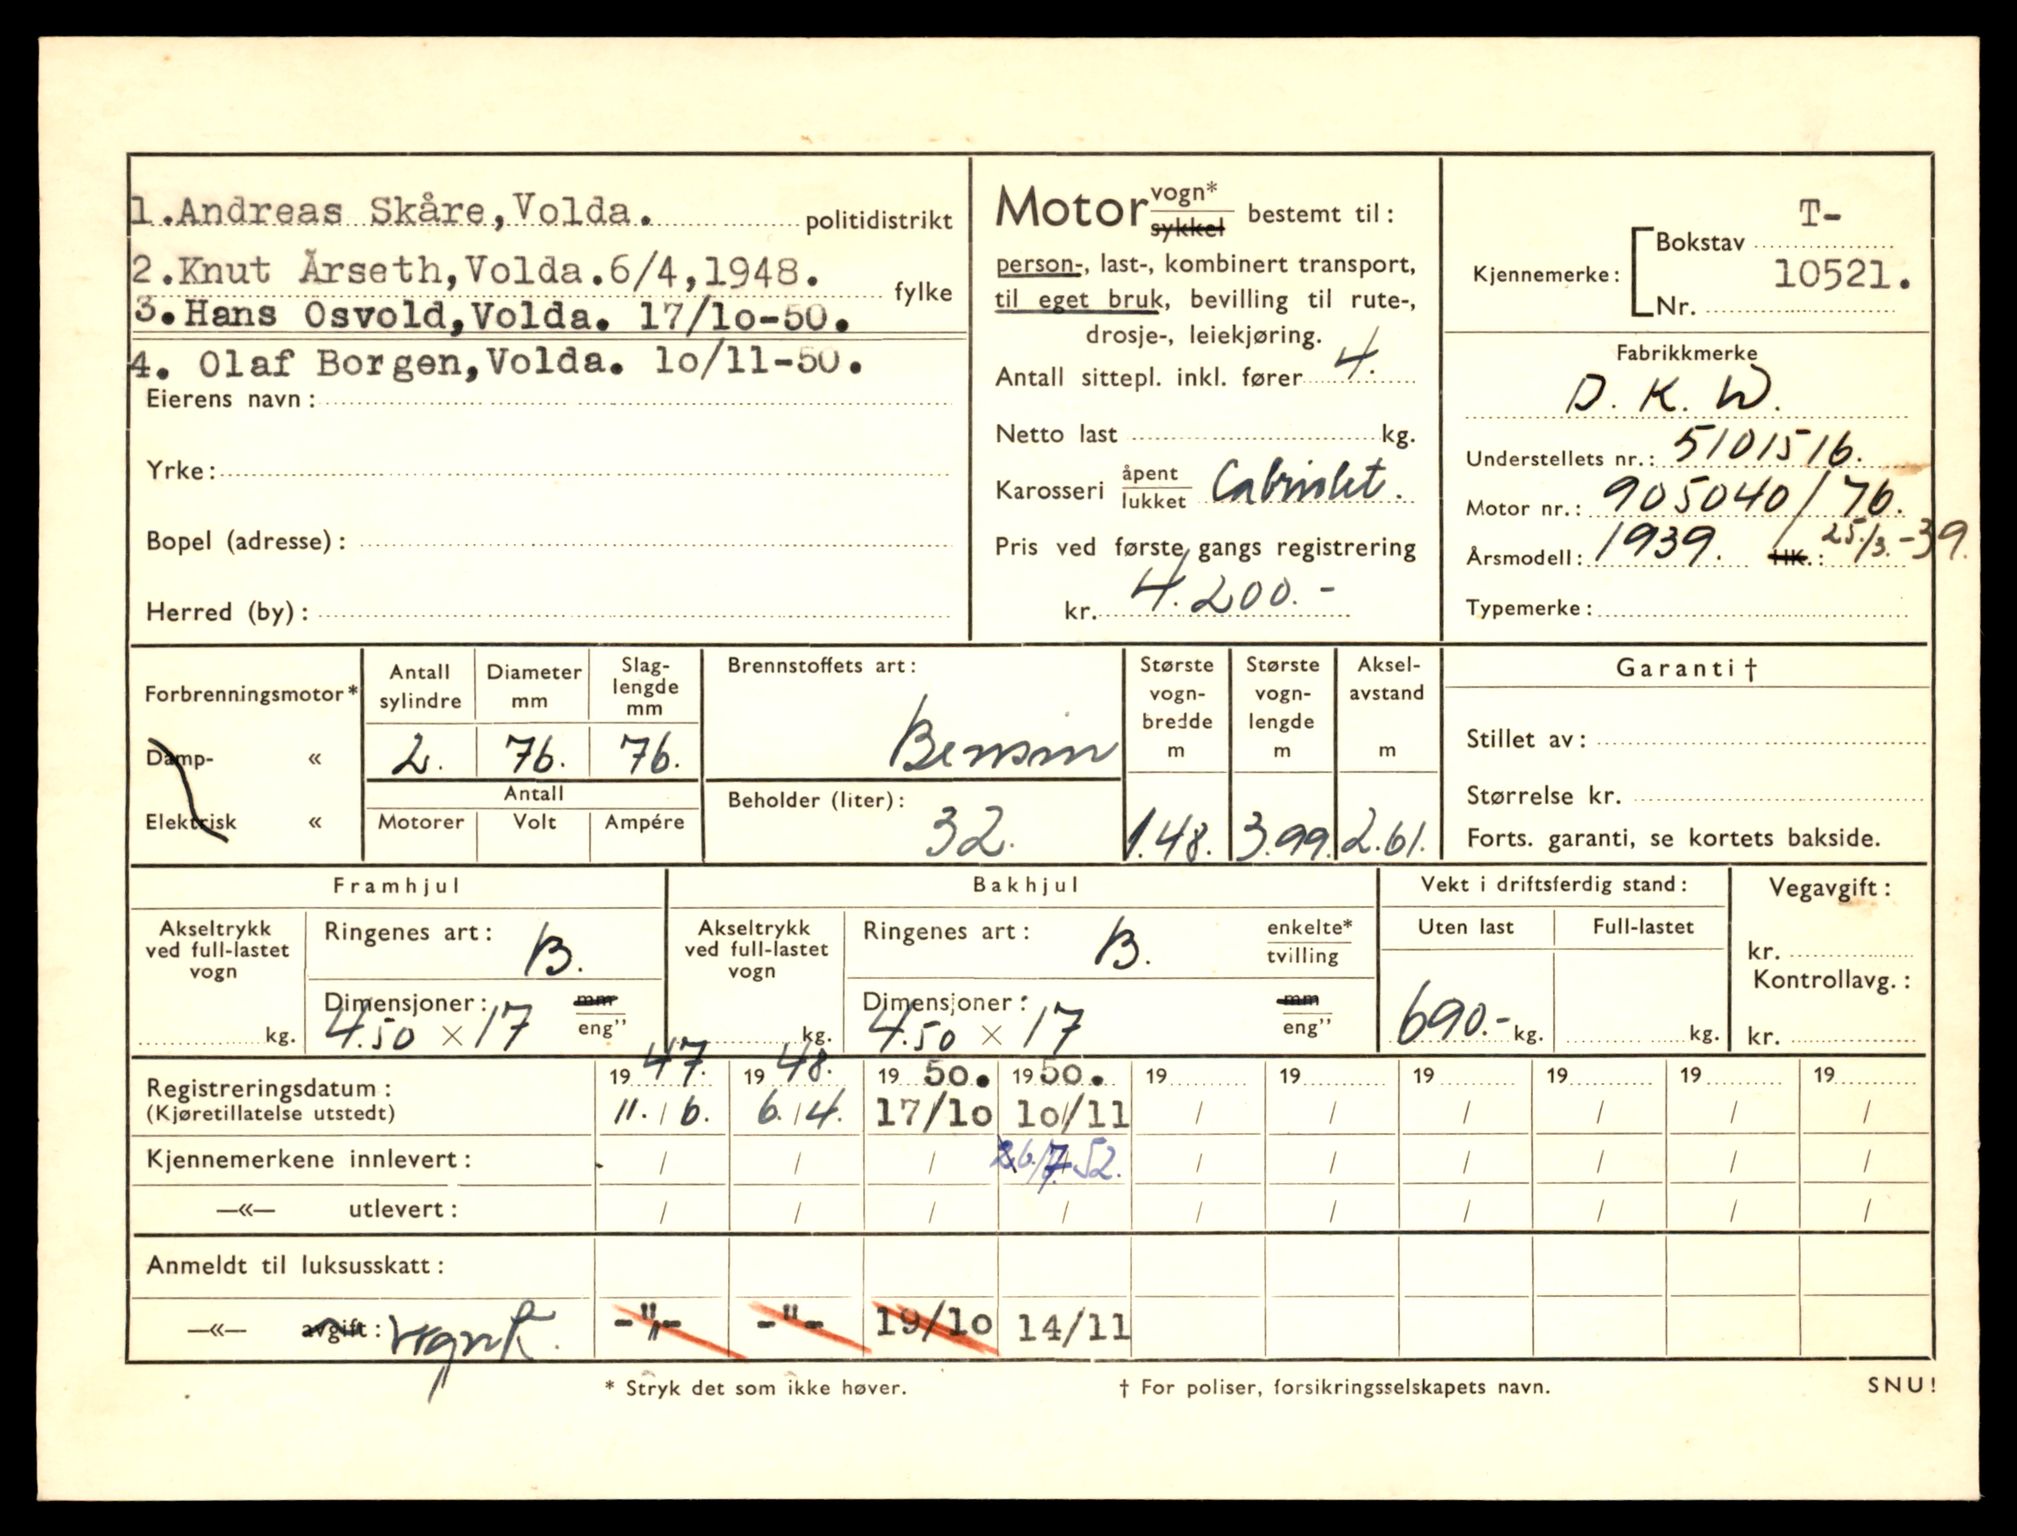 1.Andreas Skåre,Volda. politidistrikt
2.Knut Årseth,Volda.6/4,1948.
fylke
3.Hans Osvold,Volda. 17/10-50.
4. Olaf Borgen,Volda. 10/11-50.
Eierens navn:
Yrke:
Bopel (adresse):
Herred (by):
Motor vogn* sykkel bestemt til:
person-, last-, kombinert transport,
til eget bruk, bevilling til rute-,
drosje-, leiekjøring.
Antall sittepl. inkl. fører 4.
Netto last kg.
Karosseri åpent lukket Cabriolet.
Pris ved første gangs registrering
kr. 4.200.-
Kjennemerke:
Bokstav T-
Nr. 10521.
Fabrikkmerke
D. K. W.
Understellets nr.: 5101516.
Motor nr.: 905040/76.
Årsmodell: 1939. HK.: 25./3.-39.
Typemerke:
Forbrenningsmotor*
Damp- «
Elektrisk «
Antall sylindre
Diameter mm
Slag-lengde mm
2. 76. 76.
Antall
Motorer Volt Ampére
Brennstoffets art:
Bensin
Beholder (liter):
32.
Største vogn-bredde m
Største vogn-lengde m
Aksel-avstand m
1.48. 3.99. 2.61.
Garanti †
Stillet av:
Størrelse kr.
Forts. garanti, se kortets bakside.
Framhjul
Akseltrykk ved full-lastet vogn
kg.
Ringenes art: B.
Dimensjoner: mm
4.50 × 17 eng”
Bakhjul
Akseltrykk ved full-lastet vogn
kg.
Ringenes art: B. enkelte* tvilling
Dimensjoner: mm
4.50 × 17 eng”
Vekt i driftsferdig stand:
Uten last Full-lastet
690.- kg. kg.
Vegavgift:
kr.
Kontrollavg.:
kr.
Registreringsdatum: 19 47. 19 48. 19 50. 19 50. 19 19 19 19 19 19
(Kjøretillatelse utstedt) 11. / 6. 6. / 4. 17/10 10/11 / / / / / /
Kjennemerkene innlevert: / / / 26/7.52. / / / / / /
—«— utlevert: / / / / / / / / / /
Anmeldt til luksusskatt:
—«— avgift: -"- -"- 19/10 14/11
* Stryk det som ikke høver.
† For poliser, forsikringsselskapets navn.
SNU!